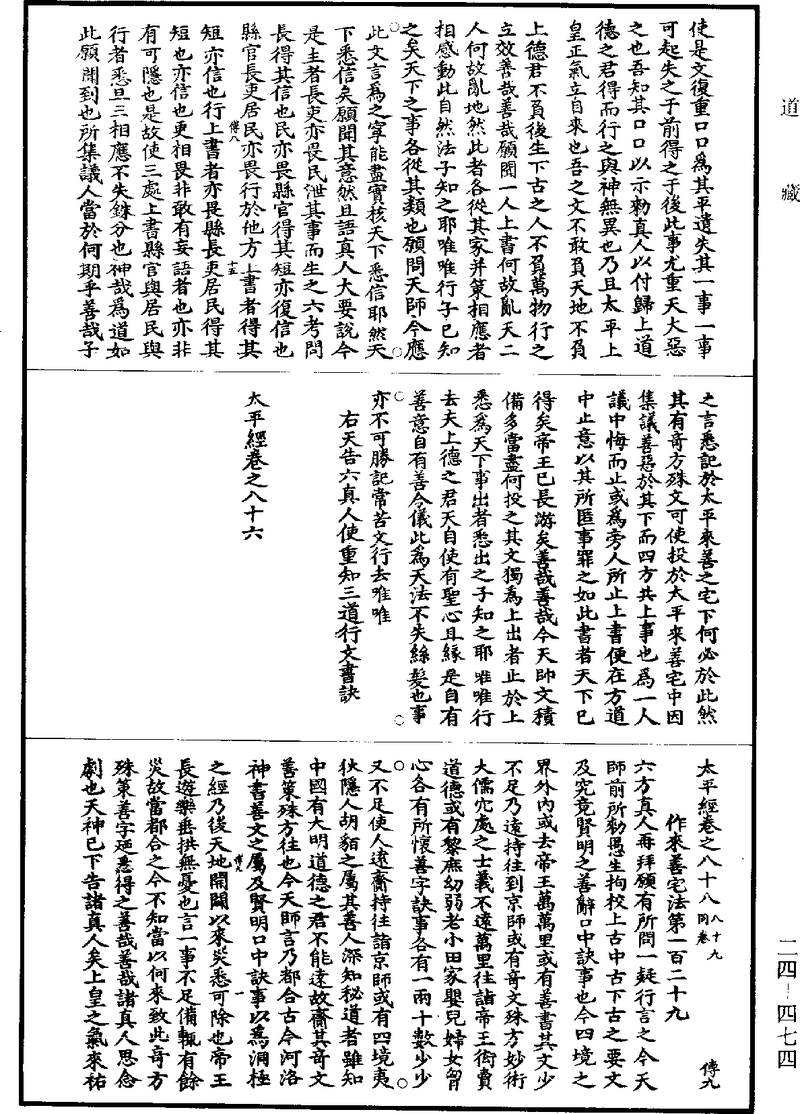 道藏
使是文復重口口為其平遺失其一事一事
可起失之于前得之于後此事尤重天大惡
之也吾知其口口以示勑真人以付歸上道
德之君得而行之與神無異也乃且太平上
皇正氣立自來也吾之文不敢負天地不負
上德君不負後生下古之人不負萬物行之
立效善哉善哉願聞一人上書何故亂天二
人何故亂地然此者各從其家并策相應者
相感動此自然法子知之耶唯唯行子已知
之矣天下之事各從其類也願問天師今應
此文言為之寧能盡實核天下悉信耶然天
下悉信矣願聞其意然且語真人大要說今
是主者長吏亦畏民泄其事而生之六考問
長得其信也民亦畏縣官得其短亦復信也
縣官長吏居民亦畏行於他方上書者得其
傅八
十五
短亦信也行上書者亦畏縣長吏居民得其
短也亦信也更相畏非敢有妄語者也亦非
有可隱也是故使三處上書縣官與居民與
行者悉旦三相應不失銖分也神哉為道如
此願聞到也所集議人當於何期乎善哉子
之言悉記於太平來善之宅下何必於此然
其有奇方殊文可使投於太平來善宅中因
集議善惡於其下而四方共上事也為一人
議中悔而止或為旁人所止上書便在方道
中止意以其所匿事罪之如此書者天下已
得矣帝王已長游矣善哉善哉今天師文積
備多當盡何投之其文獨為上出者止於上
悉為天下事出者悉出之子知之耶唯唯行
去夫上德之君天自使有聖心且緣是自有
善意自有善今儀此為天法不失絲髮也事
亦不可勝記常苦文行去唯唯
右天告六真人使重知三道行文書訣
太平經卷之八十六
太平經卷之八十八 八十九同卷
傅九
作來善宅法第一百二十九
六方真人再拜願有所問一疑行言之今天
師前所勑愚生拘校上古中古下古之要文
及究竟賢明之善辭口中訣事也今四境之
界外內或去帝王萬萬里或有善書其文少
不足乃遠持往到京師或有奇文殊方妙術
大儒穴處之士義不遠萬里往詣帝王衒賣
道德或有黎庶幼弱老小田家嬰兒婦女胷
心各有所懷善字訣事各有一兩十數少少
又不足使人遠齎持往詣京師或有四境夷
狄隱人胡貊之屬其善人深知秘道者雖知
中國有大明道德之君不能遠故齎其奇文
善策殊方往也今天師言乃都合古今河洛
神書善文之屬及賢明口中訣事以為洞極
一
之經乃後天地開闢以來災悉可除也帝王
長遊樂垂拱無憂也言一事不足備輒有餘
災故當都合之今不知當以何來致此奇方
殊策善字迺悉得之善哉善哉諸真人思念
劇也天神已下告諸真人矣上皇之氣來祐
二四－四七四